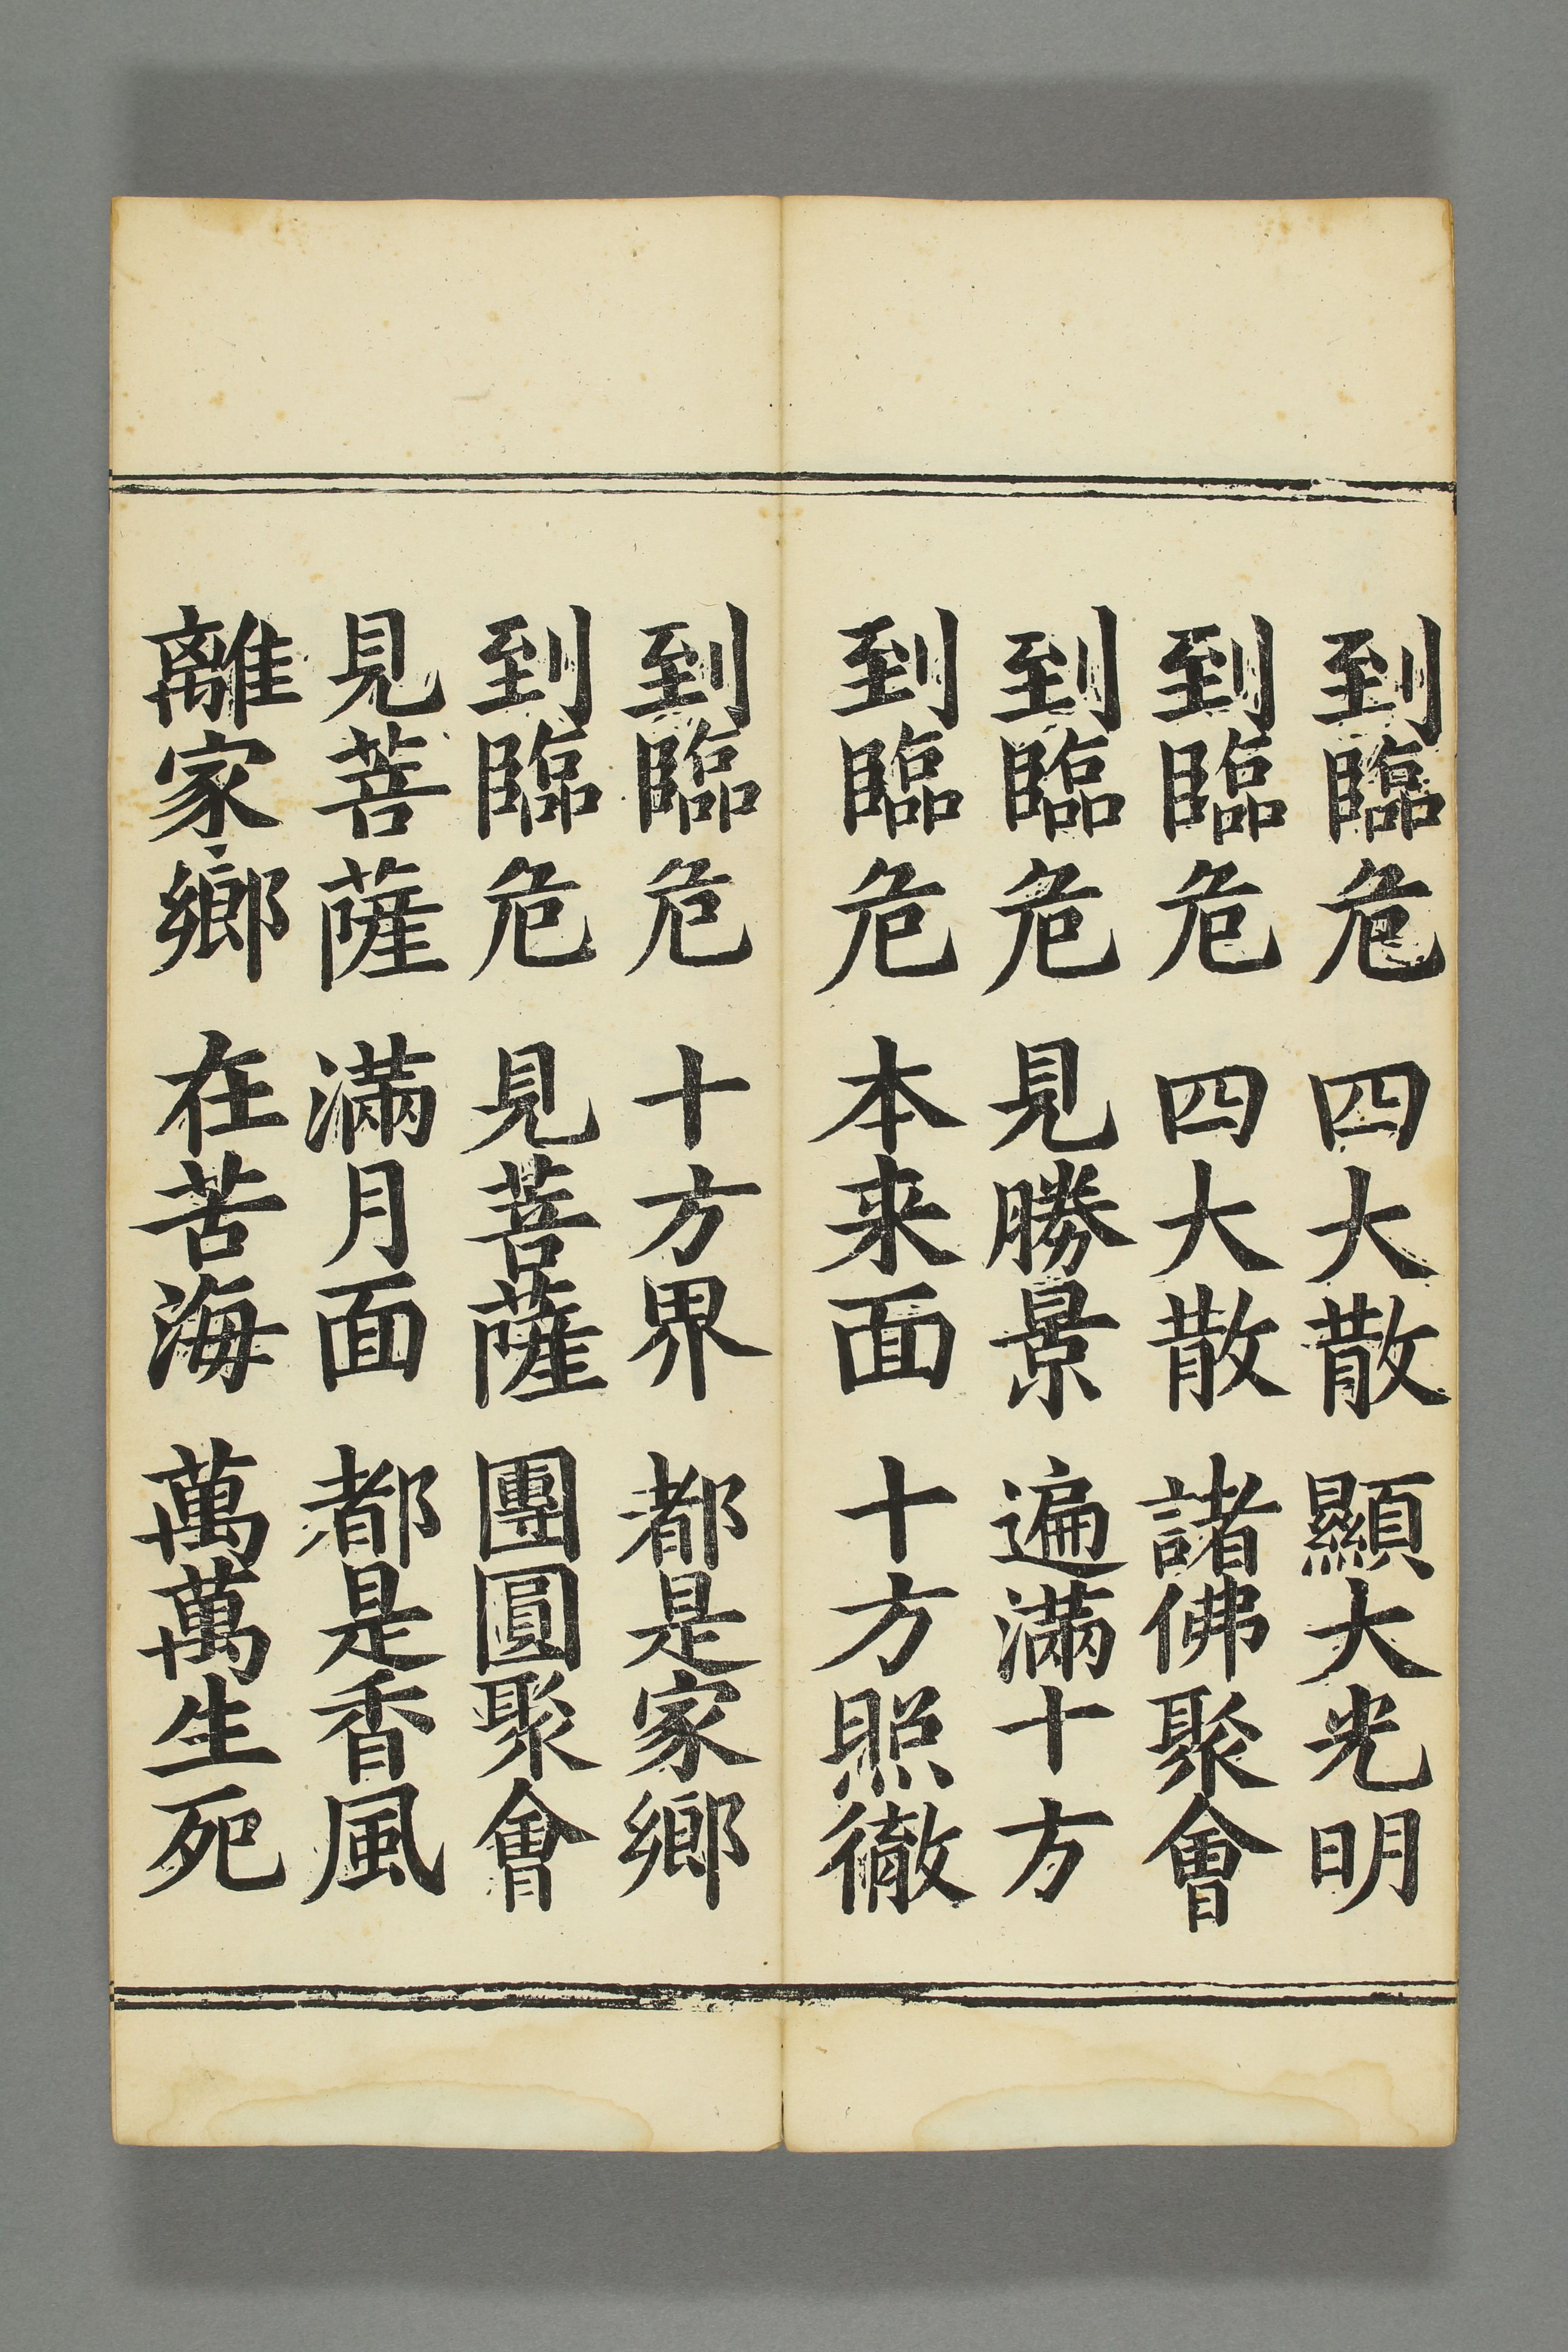 到臨危 四大散 顯大光明
到臨危 四大散 諸佛聚會
到臨危 見勝景 遍滿十方
到臨危 本来面 十方照徹
到臨危 十方界 都是家鄉
到臨危 見菩薩 團圓聚會
見菩薩 滿月面 都是香風
離家鄉 在苦海 萬萬生死